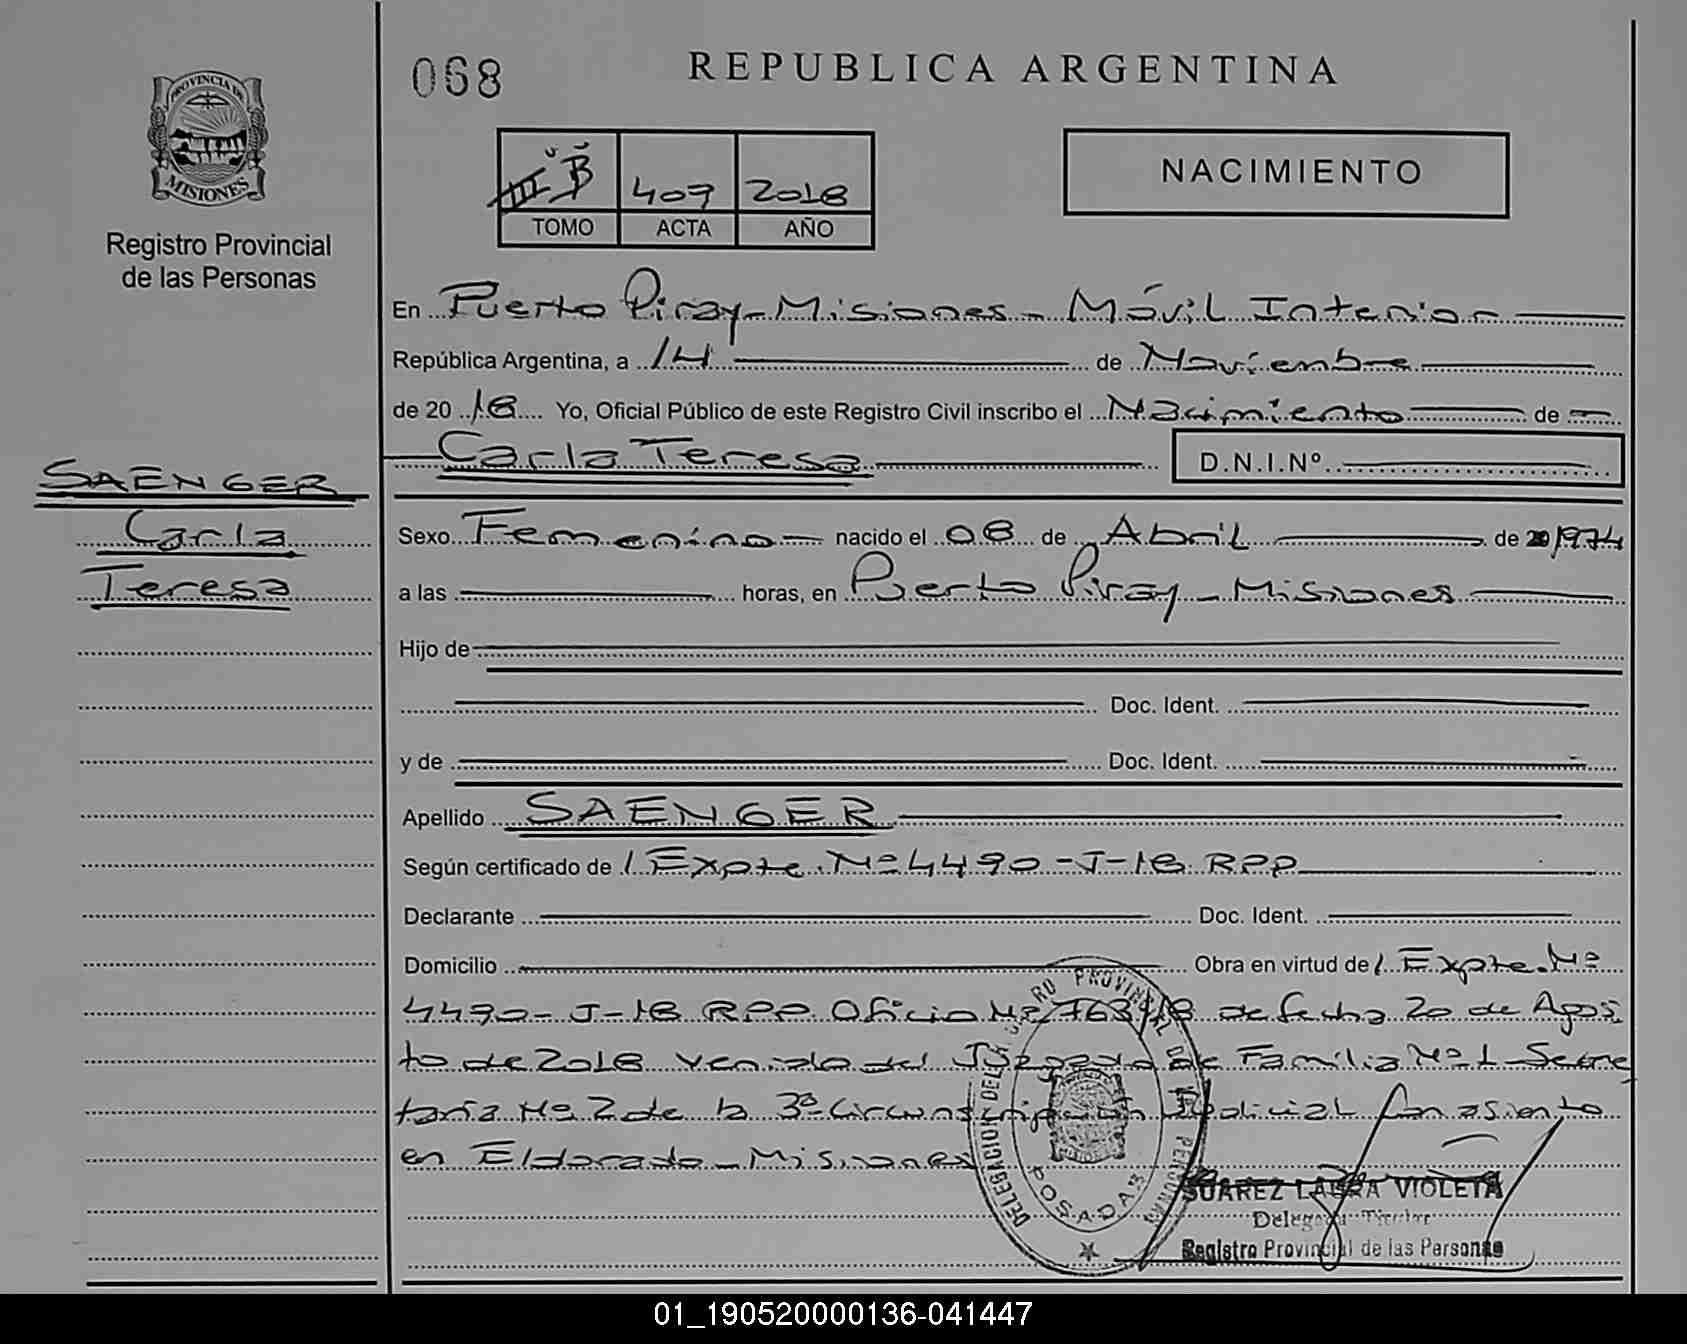 PROVINCIA DE
MISIONES
Registro Provincial
de las Personas
068
REPUBLICA ARGENTINA
III B 409 2018
TOMO ACTA AÑO
NACIMIENTO
En Puerto Piray - Misiones - Móvil Interior
República Argentina, a 14 de Noviembre
de 20 18 Yo, Oficial Público de este Registro Civil inscribo el Nacimiento de
Carla Teresa D.N.I.Nº
SAENGER
Carla
Teresa
Sexo Femenino nacido el 08 de Abril de 1974
a las horas, en Puerto Piray - Misiones
Hijo de
Doc. Ident.
y de Doc. Ident.
Apellido SAENGER
Según certificado de / Expte. Nº 4490-J-18 RPP
Declarante Doc. Ident.
Domicilio Obra en virtud de / Expte. Nº
4490-J-18 RPP Oficio Nº 763/18 de fecha 20 de Agos
to de 2018 venido del Juzgado de Familia Nº 1 - Secre
taría Nº 2 de la 3º Circunscripción Judicial con asiento
en Eldorado - Misiones
DELEGACION DEL REGISTRO PROVINCIAL DE LAS PERSONAS
POSADAS
SUAREZ LAURA VIOLETA
Delegada Titular
Registro Provincial de las Personas
01_190520000136-041447